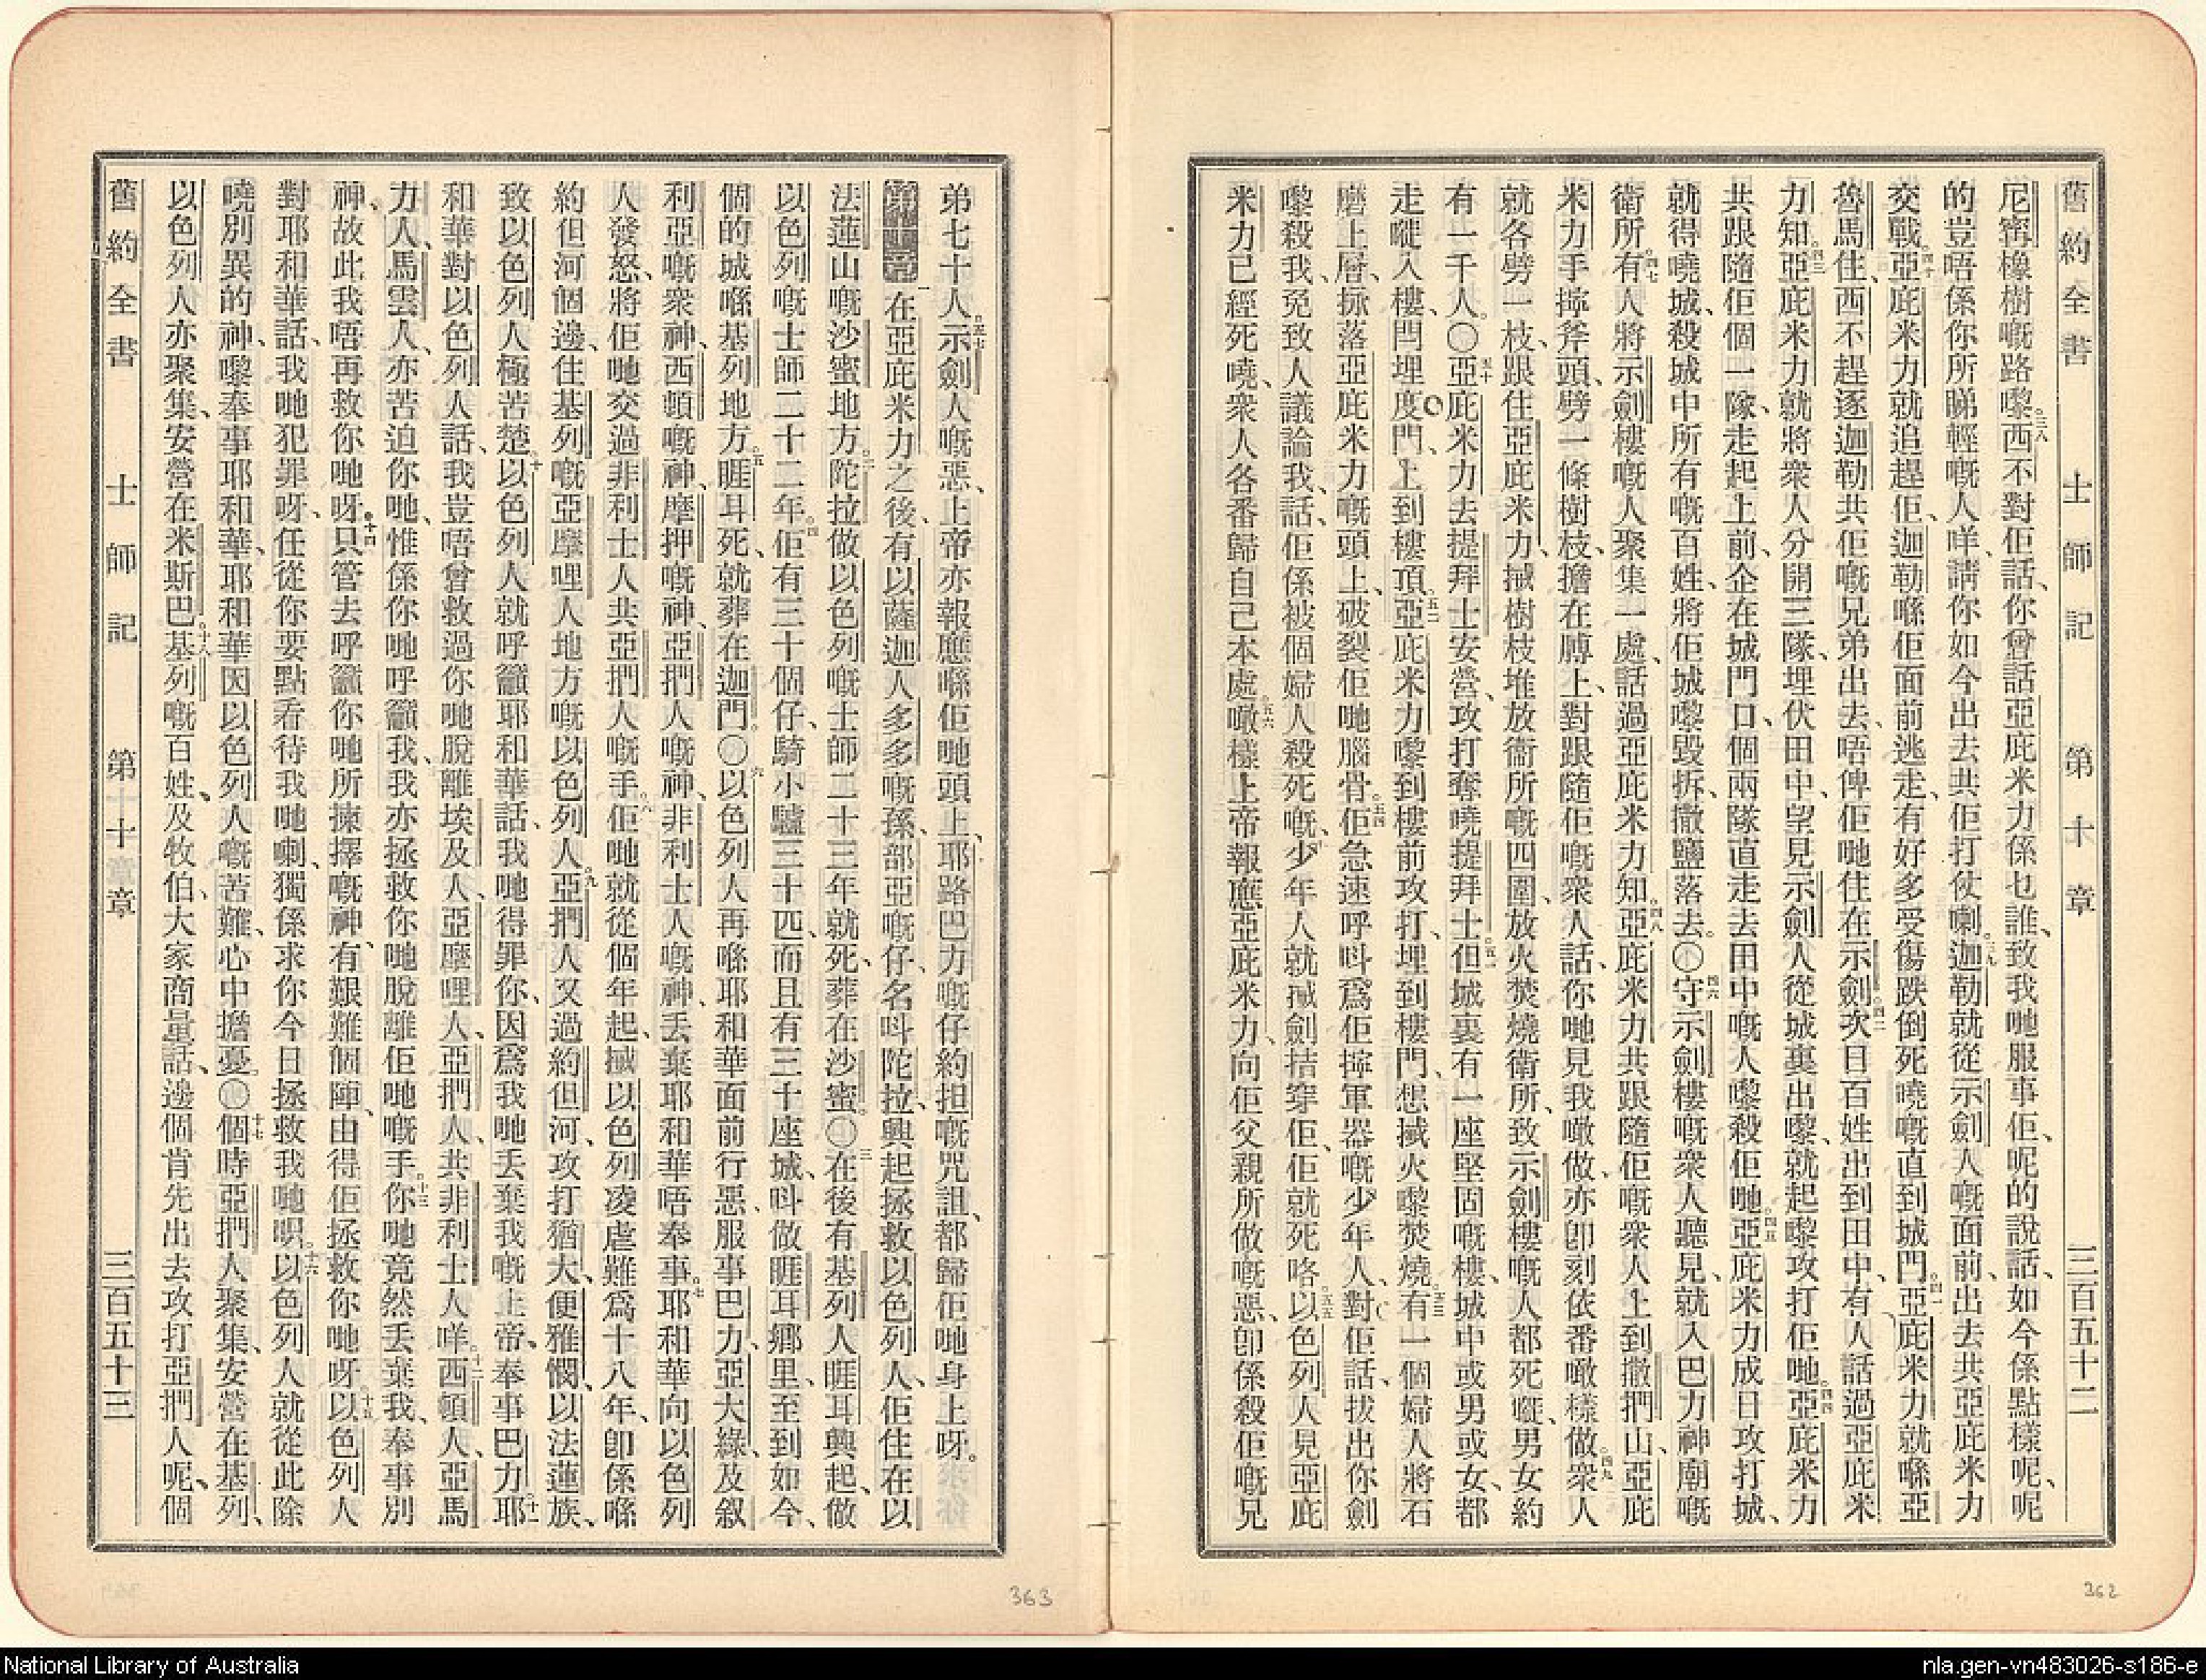 舊約全書 士師記 第十章 三百五十二
尼寗橡樹嘅路嚟。三八西不對佢話、你曾話亞庇米力係乜誰、致我哋服事佢、呢的說話、如今係點樣呢、呢
的豈唔係你所睇輕嘅人咩、請你如今出去共佢打仗喇。三九迦勒就從示劍人嘅面前、出去共亞庇米力
交戰。四十亞庇米力就追趕佢、迦勒喺佢面前逃走、有好多受傷跌倒死嘵嘅直到城門。四一亞庇米力就喺亞
魯馬住、西不趕逐迦勒共佢嘅兄弟出去、唔俾佢哋住在示劍。四二次日百姓出到田中、有人話過亞庇米
力知。四三亞庇米力就將衆人分開三隊、埋伏田中、望見示劍人從城裏出嚟、就起嚟攻打佢哋。四四亞庇米力
共跟隨佢個一隊、走起上前、企在城門口、個兩隊直走去田中嘅人嚟殺佢哋。四五亞庇米力成日攻打城、
就得嘵城、殺城中所有嘅百姓、將佢城嚟毀拆、撒鹽落去。〇四六守示劍樓嘅衆人聽見、就入巴力神廟嘅
衛所。四七有人將示劍樓嘅人聚集一處、話過亞庇米力知。四八亞庇米力共跟隨佢嘅衆人上到撒捫山、亞庇
米力手擰斧頭、劈一條樹枝、擔在膊上、對跟隨佢嘅衆人話、你哋見我噉做、亦卽刻依番噉樣做。四九衆人
就各劈一枝、跟住亞庇米力、搣樹枝堆放衛所嘅四圍、放火焚燒衛所、致示劍樓嘅人都死嘥、男女約
有一千人。〇五十亞庇米力去提拜士安營、攻打奪嘵提拜士。五一但城裏有一座堅固嘅樓、城中或男或女、都
走嘥入樓、閂埋度門、上到樓頂。五二亞庇米力嚟到樓前攻打、埋到樓門、想搣火嚟焚燒。五三有一個婦人將石
磨上層、揼落亞庇米力嘅頭上、破裂佢哋腦骨。五四佢急速呌爲佢擰軍器嘅少年人、對佢話、拔出你劍
嚟殺我、免致人議論我、話、佢係被個婦人殺死嘅、少年人就搣劍拮穿佢、佢就死咯。五五以色列人見亞庇
米力已經死嘵、衆人各番歸自己本處。五六噉樣上帝報應亞庇米力、向佢父親所做嘅惡、卽係殺佢嘅兄
弟七十人。五七示劍人嘅惡、上帝亦報應喺佢哋頭上、耶路巴力嘅仔約担嘅咒詛、都歸佢哋身上呀。
第十章 一在亞庇米力之後、有以薩迦人多多嘅孫、部亞嘅仔、名呌陀拉、興起拯救以色列人、佢住在以
法蓮山嘅沙蜜地方。二陀拉做以色列嘅士師二十三年就死、葬在沙蜜。〇三在後有基列人睚耳興起、做
以色列嘅士師二十二年。四佢有三十個仔、騎小驢三十匹、而且有三十座城、呌做睚耳鄉里、至到如今、
個的城喺基列地方。五睚耳死、就葬在迦門。〇六以色列人再喺耶和華面前行惡、服事巴力、亞大綠、及叙
利亞嘅衆神、西頓嘅神、摩押嘅神、亞捫人嘅神、非利士人嘅神、丢棄耶和華唔奉事。七耶和華向以色列
人發怒、將佢哋交過非利士人共亞捫人嘅手。八佢哋就從個年起、搣以色列凌虐難爲十八年、卽係喺
約但河個邊、住基列嘅亞摩哩人地方嘅以色列人。九亞捫人又過約但河、攻打猶大、便雅憫、以法蓮族、
致以色列人極苦楚。十以色列人就呼籲耶和華話、我哋得罪你、因爲我哋丢棄我嘅上帝、奉事巴力。十一耶
和華對以色列人話、我豈唔曾救過你哋脫離埃及人、亞摩哩人、亞捫人、共非利士人咩。十二西頓人、亞馬
力人、馬雲人、亦苦迫你哋、惟係你哋呼籲我、我亦拯救你哋脫離佢哋嘅手。十三你哋竟然丢棄我、奉事別
神、故此我唔再救你哋呀。十四只管去呼籲你哋所揀擇嘅神、有艱難個陣、由得佢拯救你哋呀。十五以色列人
對耶和華話、我哋犯罪呀、任從你要點看待我哋喇、獨係求你今日拯救我哋呮。十六以色列人就從此除
嘵別異的神、嚟奉事耶和華、耶和華因以色列人嘅苦難、心中擔憂。〇十七個時亞捫人聚集、安營在基列、
以色列人亦聚集、安營在米斯巴。十八基列嘅百姓、及牧伯、大家商量話、邊個肯先出去攻打亞捫人呢、個
舊約全書 士師記 第十章 三百五十三
363
362
National Library of Australia
nla.gen-vn483026-s186-e